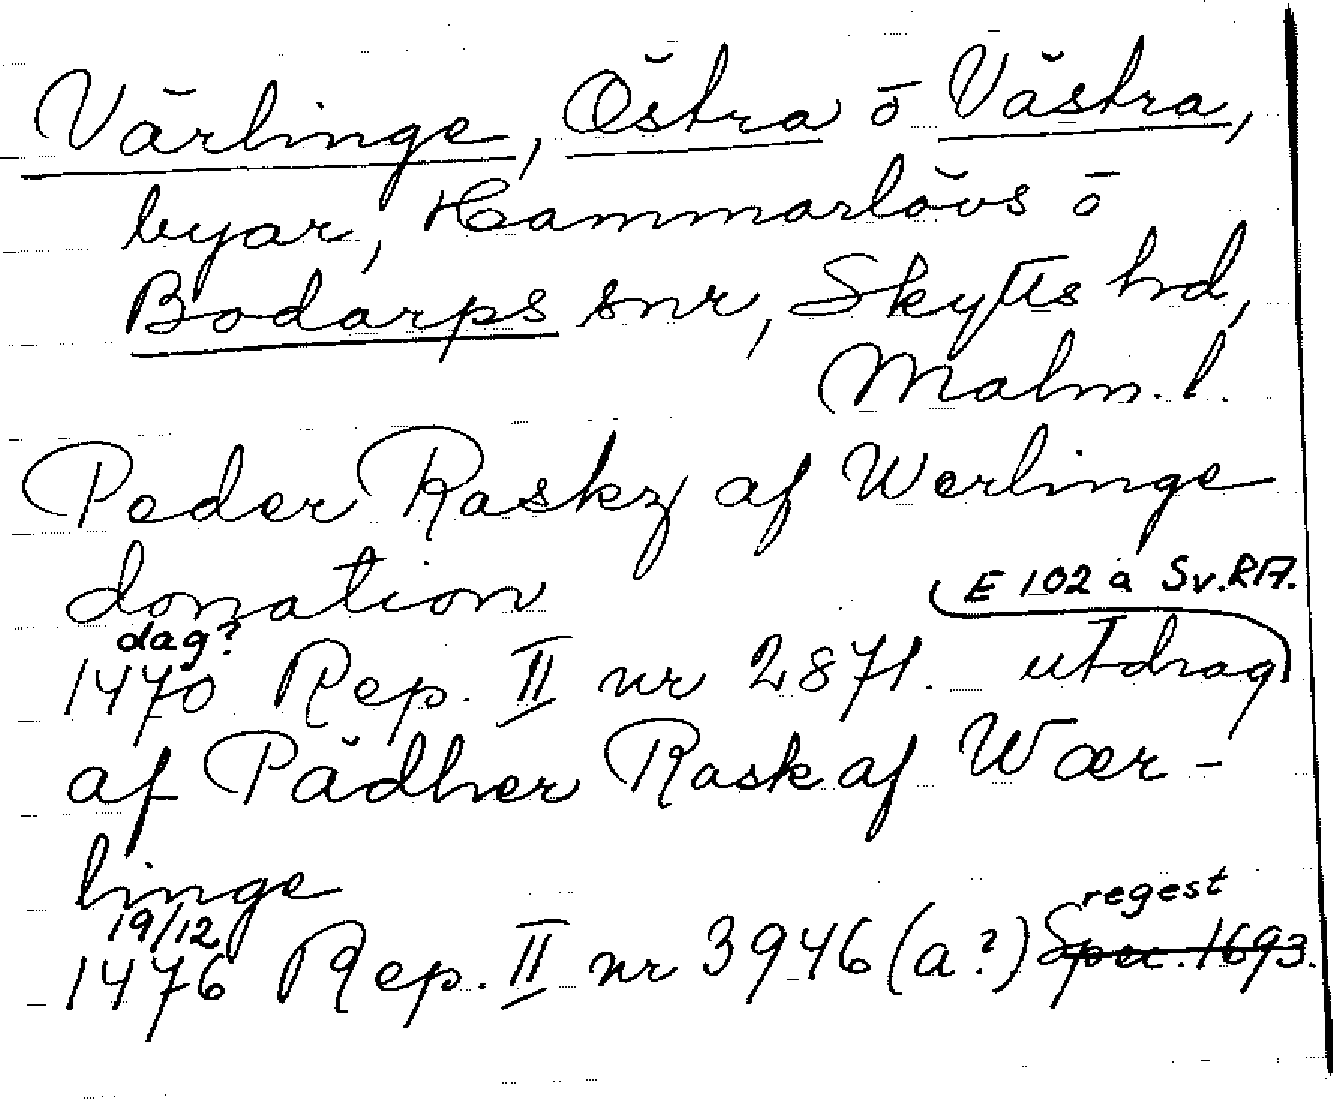 Värlinge, Östra o Västra,
byar, Hammarlövs o
Bodarps snr, Skytts hd,
Malm. l.
Peder Raskz af Werlinge
donation
E 102 a Sv.RA.
dag?
1470 Rep. II nr 2871. utdrag
af Pädher Rask af Wær-
linge
19/12 regest
1476 Rep. II nr 3946 (a?) Spec. 1693.